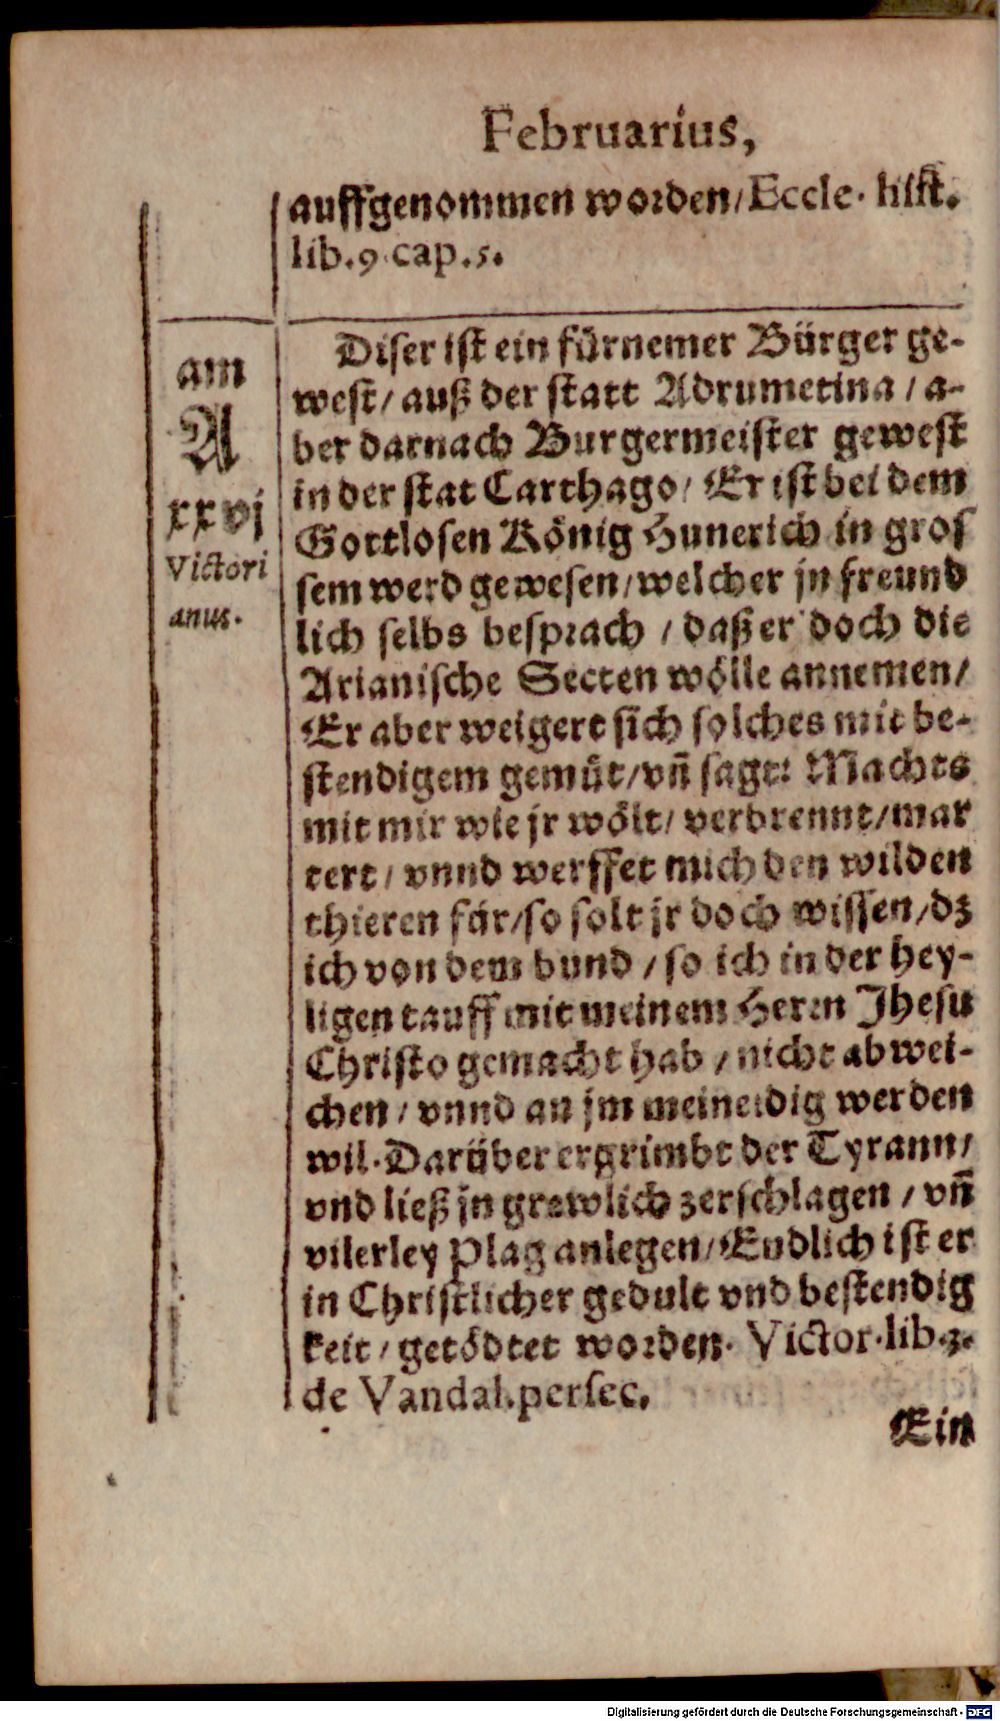 Februarius,
auffgenommen worden/Eccle. hist.
lib.9.cap.5.
am
A
xxvj
Victori
anus.
Diser ist ein fürnemer Bürger ge-
west/ auß der statt Adrumetina / a-
ber darnach Burgermeister gewest
in der stat Carthago/ Er ist bei dem
Gottlosen König Hunerich in gros
sem werd gewesen/welcher jn freund
lich selbs besprach / daß er doch die
Arianische Secten wölle annemen/
Er aber weigert sich solches mit be-
stendigem gemüt/vñ sagt: Machts
mit mir wie jr wölt/ verbrennt/mar
tert/ vnnd werffet mich den wilden
thieren für/so solt jr doch wissen/dz
ich von dem bund / so ich in der hey-
ligen tauff mit meinem Herrn Jhesu
Christo gemacht hab / nicht abwei-
chen/ vnnd an jm meineidig werden
wil. Darüber ergrimbt der Tyrann/
vnd ließ jn grewlich zerschlagen / vñ
vilerley Plag anlegen/Endlich ist er
in Christlicher gedult vnd bestendig
keit/ getödtet worden. Victor.lib.3.
de Vandal.persec.
Ein
Digitalisierung gefördert durch die Deutsche Forschungsgemeinschaft - DFG